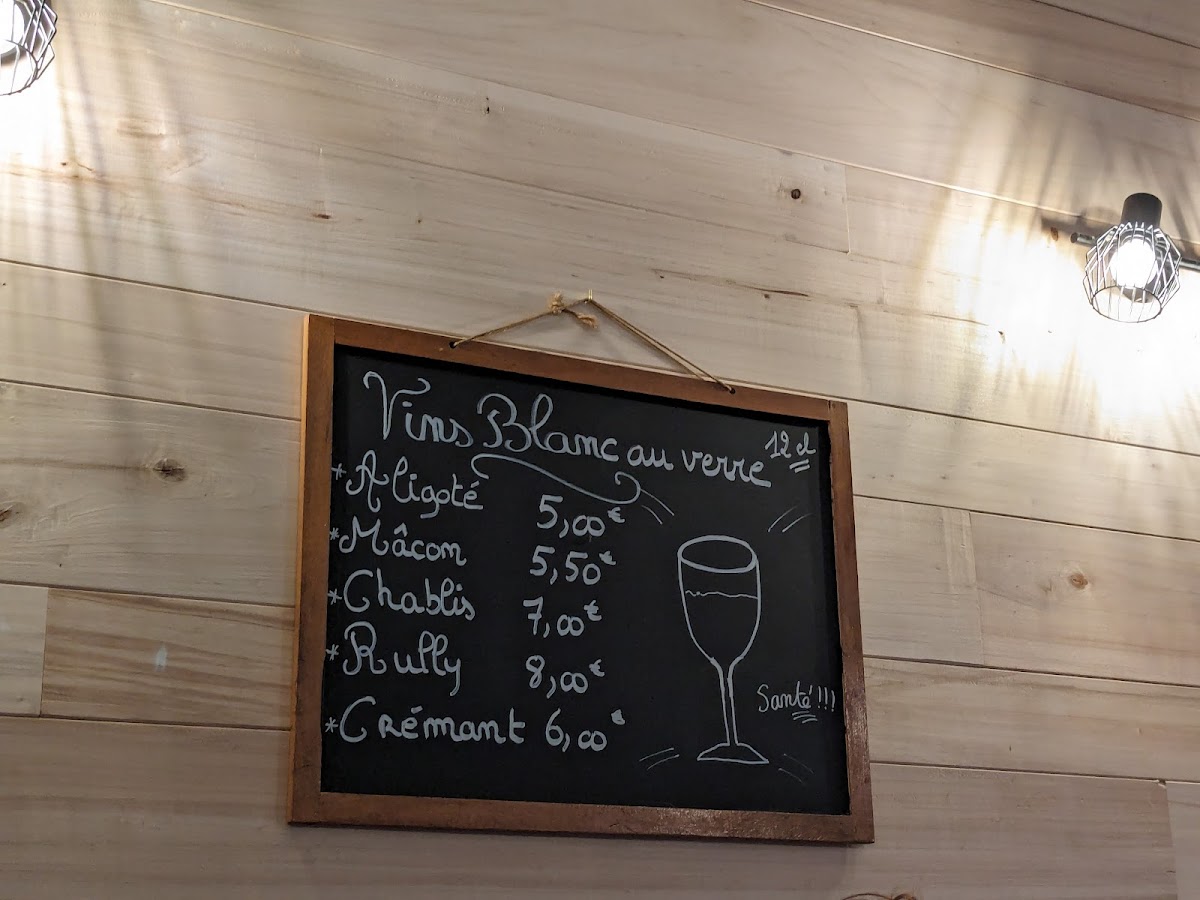 Vins Blanc au verre 12 cl
*Aligoté 5,00€
*Mâcon 5,50€
*Chablis 7,00€
*Rully 8,00€
*Crémant 6,00€
Santé!!!